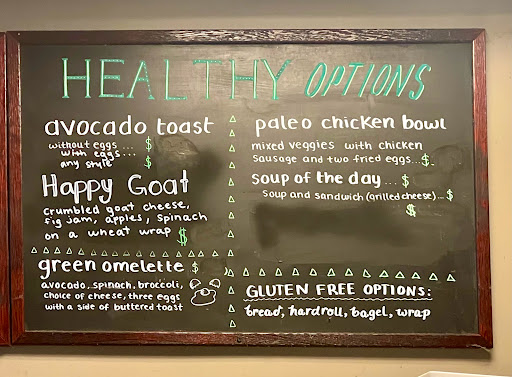 HEALTHY OPTIONS
avocado toast
without eggs ... $
with eggs ...
any style $
Happy Goat
crumbled goat cheese,
fig jam, apples, spinach
on a wheat wrap $
green omelette $
avocado, spinach, broccoli,
choice of cheese, three eggs
with a side of buttered toast
paleo chicken bowl
mixed veggies with chicken
sausage and two fried eggs...$
soup of the day ... $
soup and sandwich (grilled cheese)...$
$
GLUTEN FREE OPTIONS:
bread, hardroll, bagel, wrap